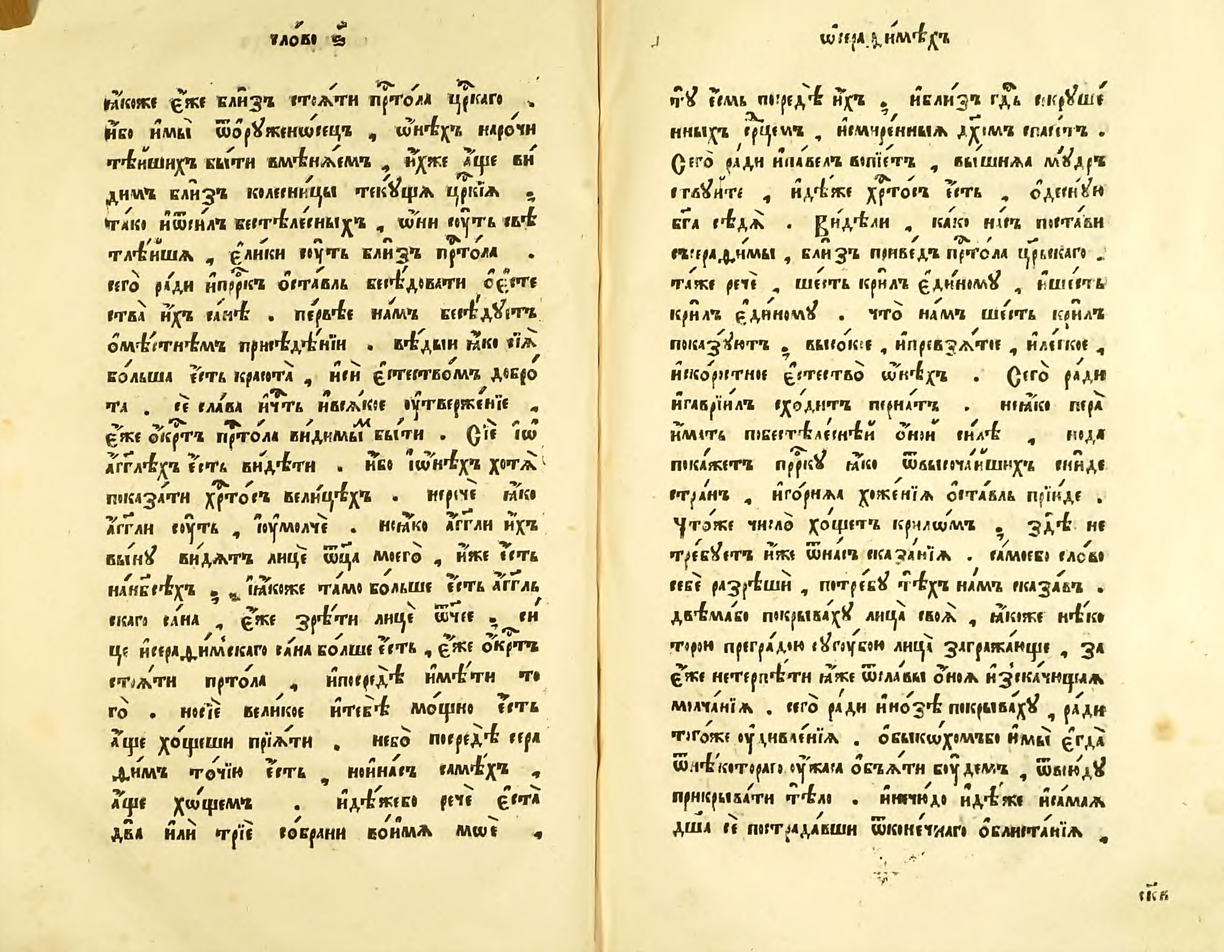 сло́во ѕ҃
ꙗ҆́коже є҆́же бли́зъ стоѧ́ти прⷭ҇то́ла црⷭ҇каго .
и҆́бо и҆мы̀ ѿѻ҆рꙋ́женосецъ , ѡ҆нѣ́хъ наро́чи
тѣ́йшихъ бы́ти вмѣнѧ́емъ , и҆́хже а҆́ще ви́
димъ бли́зъ колесни́цы текꙋ́щѧ црⷭ҇кїѧ ,
та́ко и҆ѿси́лъ бестѣле́сныхъ , ѡ҆ни сꙋ́ть свѣ
тлѣ́йшѧ , є҆ли́ки сꙋ́ть бли́зъ прⷭ҇то́ла .
сего̀ ра́ди и҆прⷪ҇ркъ ѻ҆ста́вль бесѣ́довати ѻ҆є҆сте
ства̀ и҆́хъ са́нѣ . пе́рвѣе на́мъ бесѣ́дꙋетъ
ѻ҆мѣ́стнѣмъ присѣдѣ́нїи . вѣ́дыи ꙗ҆́ко сїѧ̀
бо́льша є҆́сть красота̀ , и҆се́й є҆стество́мъ добро́
та . сѐ сла́ва и҆че́сть и҆всѧ́кое ᲂу҆твержє́нїе ,
є҆́же ѻ҆́крⷭ҇тъ прⷭ҇то́ла ви́димымъ бы́ти . Сїѐ і҆ѡ҆
а҆́гг҃лѣхъ є҆́сть ви́дѣти . и҆́бо і҆ѡ҆нѣ́хъ хотѧ̀
показа́ти хрⷭ҇то́съ вели́цѣхъ . неречѐ ꙗ҆́ко
а҆́гг҃ли сꙋ́ть , і҆ᲂу҆молчѐ . но꙳ꙗ҆́ко а҆́гг҃ли и҆́хъ
вы́нꙋ ви́дѧтъ лицѐ ѻ҆ц҃а̀ моегѡ̀ , и҆́же є҆́сть
нанб҃сѣ́хъ , ꙗ҆́коже та́мо бо́льше є҆́сть а҆́гг҃ль
скаго са́на , є҆́же зрѣ́ти лицѐ ѻ҆́ч҃ее , си́
це и҆серафи́мскаго са́на бо́лше є҆́сть , є҆́же ѻ҆́крⷭ҇тъ
стоѧ́ти прⷭ҇то́ла , и҆посредѣ̀ и҆мѣ́ти то
го̀ . носїѐ вели́кое и҆тебѣ̀ мо́щно є҆́сть
а҆́ще хо́щеши прїѧ́ти . небо̀ посредѣ̀ сера
фи́мъ то́чїю є҆́сть , нои҆на́съ самѣ́хъ ,
а҆́ще хѡ́щемъ . и҆дѣ́жебо речѐ є҆ста̀
два̀ и҆лѝ трїѐ со́брани во́имѧ моѐ ,
ѡ҆серафи́мѣхъ
тꙋ̀ є҆́смь посредѣ̀ и҆́хъ , и҆бли́зъ гдⷭ҇ь сокрꙋше́
нныхъ се́рдцемъ , и҆смире́нныѧ дꙋ́хомъ спасе́тъ .
Сего̀ ра́ди и҆па́велъ вопїе́тъ , вы́шнѧѧ мꙋ́др
ствꙋйте , и҆дѣ́же хрⷭ҇то́съ є҆́сть , ѻ҆деснꙋ́ю
бг҃а сѣдѧ̀ . Ви́дѣли , ка́ко на́съ поста́ви
съсерафи́мы , бли́зъ приве́дъ прⷭ҇то́ла цр҃ьскаго .
та́же речѐ , ше́сть кри́лъ є҆ди́номꙋ , и҆ше́сть
кри́лъ є҆ди́номꙋ . что̀ на́мъ ше́сть кри́лъ
показꙋ́ютъ , высо́кое , и҆превзѧ́тое , и҆ле́гкое ,
и҆ско́ростное є҆стество̀ ѡ҆нѣ́хъ . Сего̀ ра́ди
и҆гаврїи́лъ схо́дитъ перна́тъ . неꙗ҆́ко пера̀
и҆́мать побестѣле́снѣй ѻ҆́ной си́лѣ , нода
пока́жетъ прⷪ҇ркꙋ ꙗ҆́ко ѿвысоча́йшихъ сни́де
стра́нъ , и҆го́рнѧѧ хожє́нїѧ ѻ҆ста́вль прїи́де .
Что́же число̀ хо́щетъ крилѡ́мъ , здѣ̀ не
тре́бꙋетъ и҆́же ѿна́съ сказа́нїѧ . са́моебо сло́во
себѐ разрѣшѝ , потре́бꙋ тѣ́хъ на́мъ сказа́въ .
двѣ́мабо покрыва́хꙋ лица̀ своѧ̀ , ꙗ҆́коже нѣ́ко
торою прегра́дою сꙋгꙋ́бою лица̀ загража́юще , за
є҆́же нетерпѣ́ти ꙗ҆́же ѿсла́вы ѻ҆́ноѧ и҆зскача́ющаѧ
молча́нїѧ . сего̀ ра́ди и҆но́зѣ покрыва́хꙋ , ра́ди
того́же ᲂу҆дивле́нїѧ . ѻ҆быко́хомъбо и҆мы̀ є҆гда̀
ѿнѣ́котораго ᲂу҆́жаса ѻ҆б̾ѧ́ти бꙋ́демъ , ѿвсю́дꙋ
прикрыва́ти тѣ́ло . и҆нечю́до и҆дѣ́же и҆са́маѧ
дш҃а̀ сѐ пострада́вши ѿконе́чнаго ѻ҆блиста́нїѧ ,